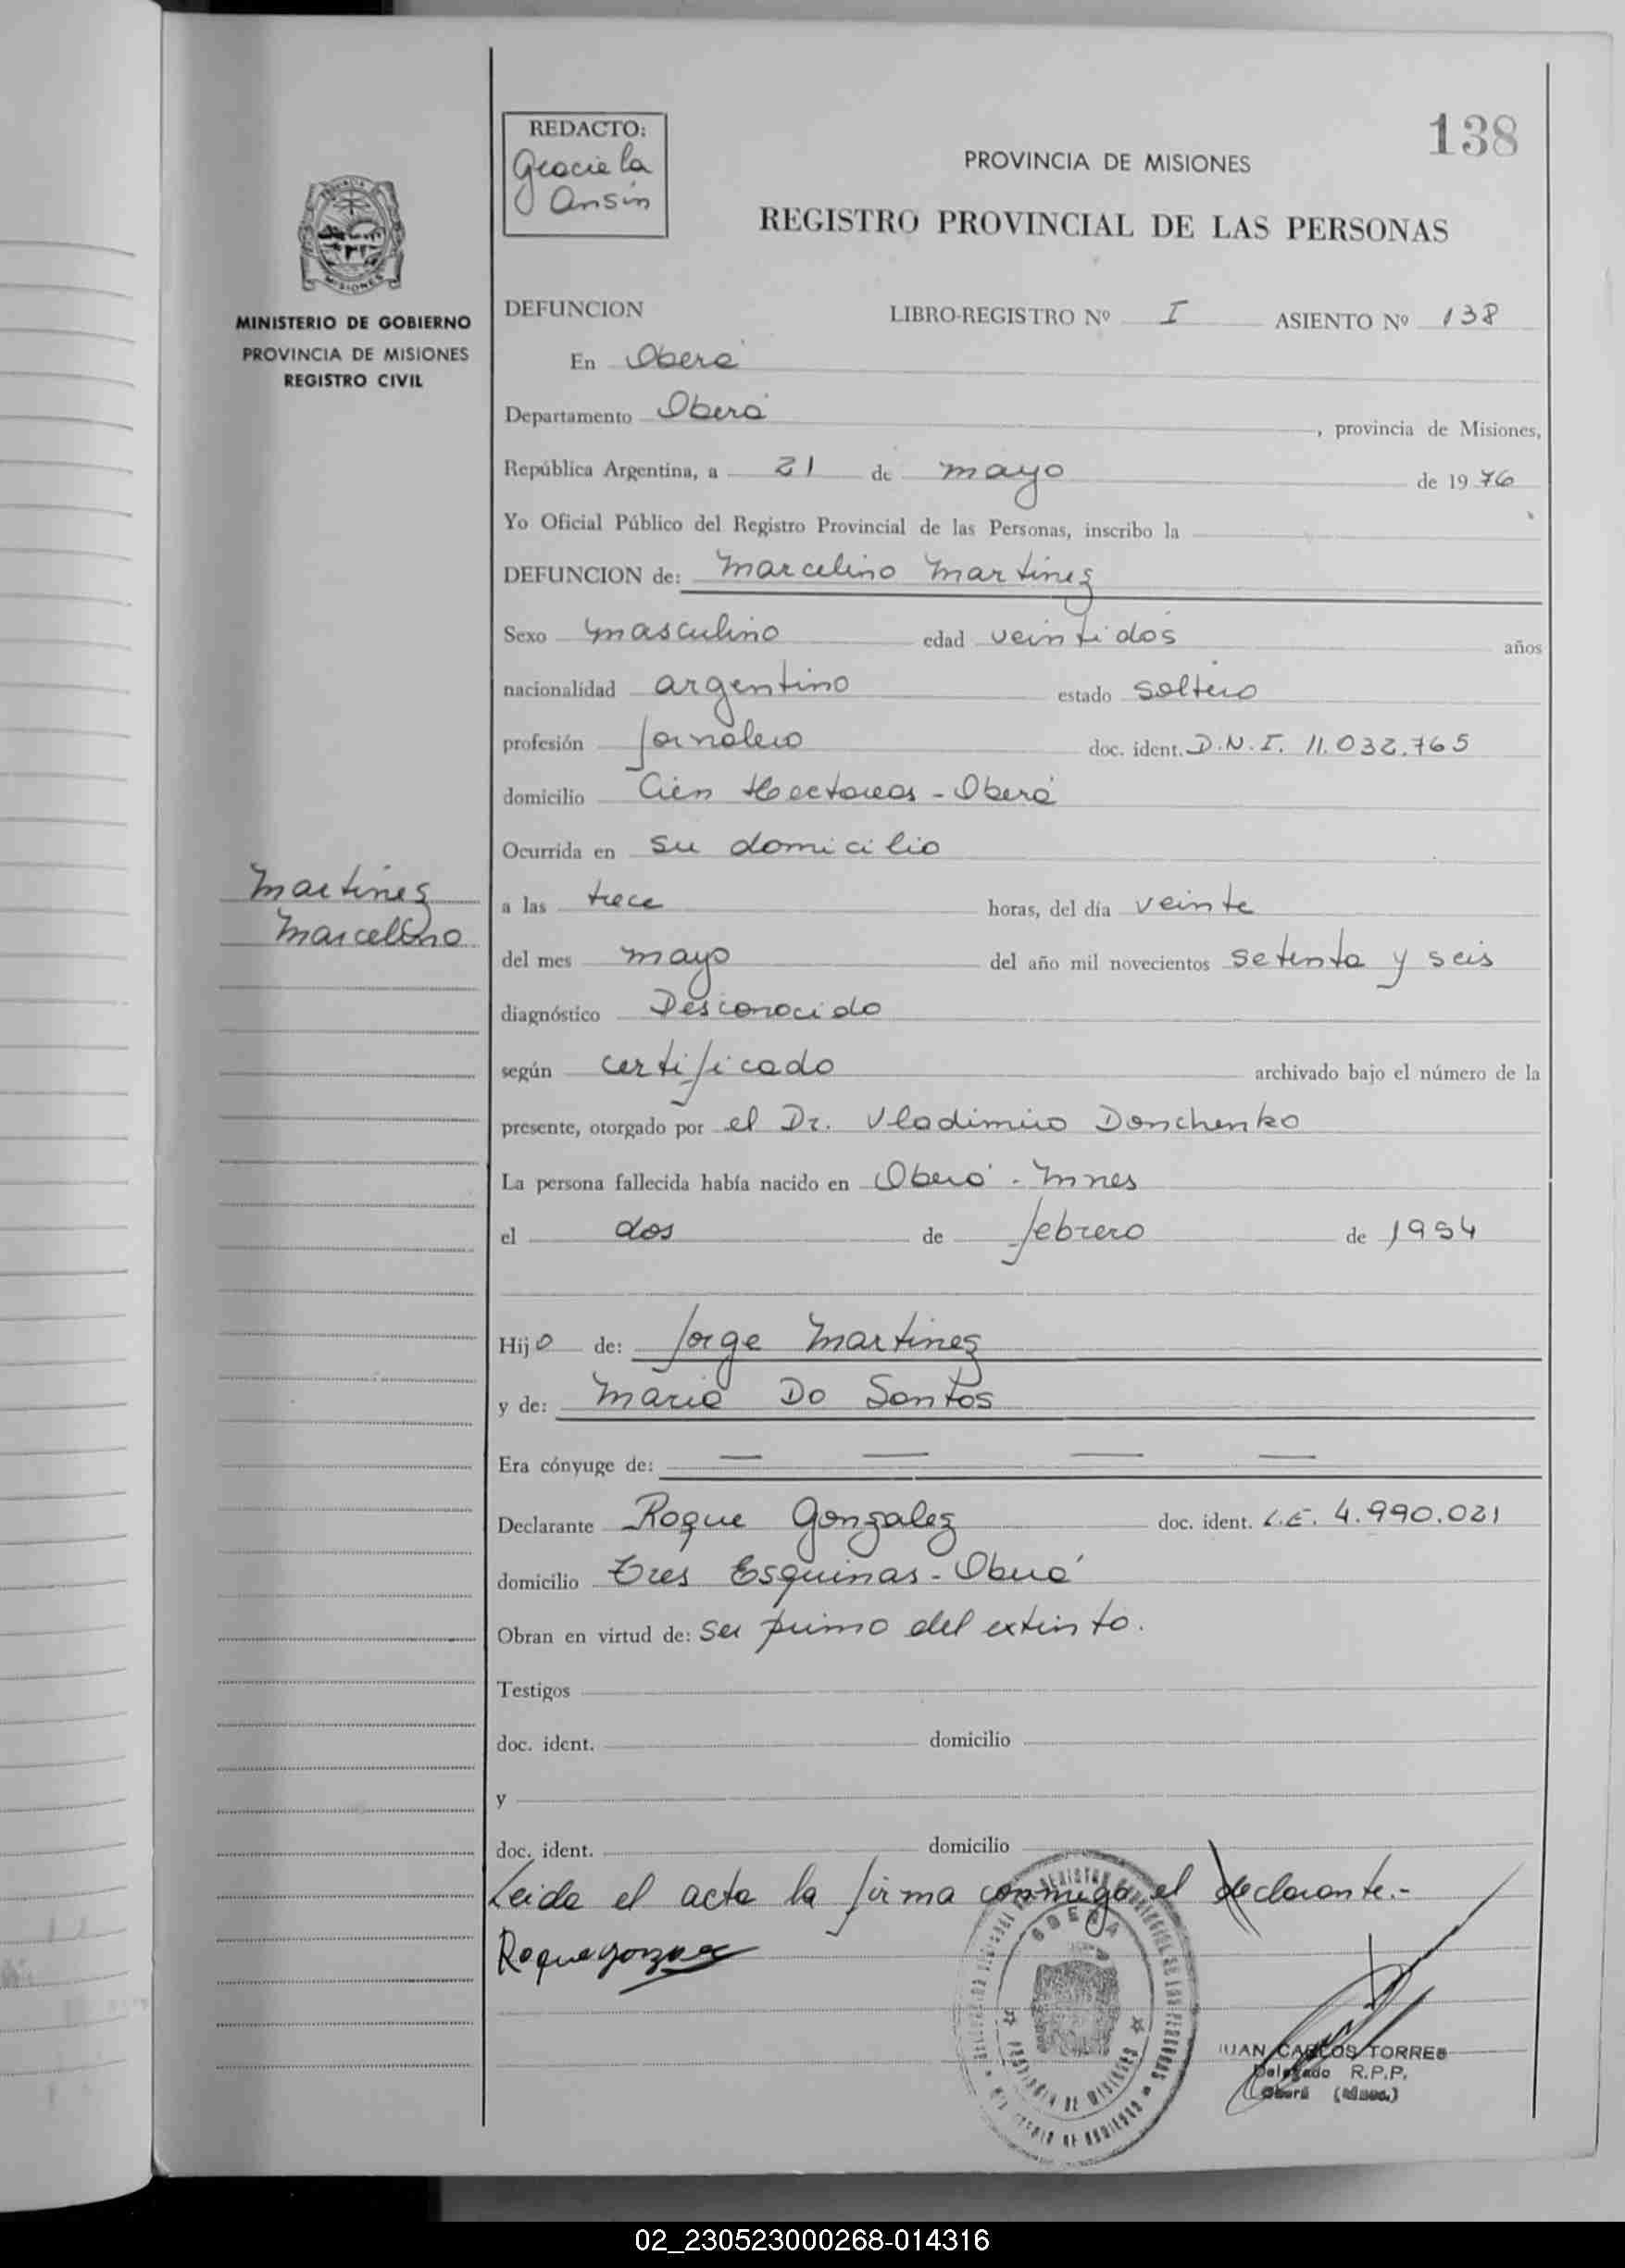 138
REDACTO:
Graciela
Ansin
PROVINCIA DE MISIONES
REGISTRO PROVINCIAL DE LAS PERSONAS
MISIONES
MINISTERIO DE GOBIERNO
PROVINCIA DE MISIONES
REGISTRO CIVIL
DEFUNCION LIBRO-REGISTRO Nº I ASIENTO Nº 138
En Oberá
Departamento Oberá, provincia de Misiones,
República Argentina, a 21 de mayo de 1976
Yo Oficial Público del Registro Provincial de las Personas, inscribo la
DEFUNCION de: Marcelino Martinez
Sexo masculino edad veintidos años
nacionalidad argentino estado soltero
profesión Jornalero doc. ident. D.N.I. 11.032.765
domicilio Cien Hectareas - Oberá
Ocurrida en su domicilio
Martinez
Marcelino
a las trece horas, del día veinte
del mes mayo del año mil novecientos setenta y seis
diagnóstico Desconocido
según certificado archivado bajo el número de la
presente, otorgado por el Dr. Vladimiro Donchenko
La persona fallecida había nacido en Oberá - Mnes
el dos de febrero de 1954
Hijo de: Jorge Martinez
y de: Maria Do Santos
Era cónyuge de: — — — —
Declarante Roque Gonzalez doc. ident. L.E. 4.990.021
domicilio Tres Esquinas - Oberá
Obran en virtud de: ser primo del extinto.
Testigos
doc. ident. domicilio
y
doc. ident. domicilio
Leida el acta la firma conmigo el declarante.-
Roque Gonzalez
OBERA
PROVINCIA DE MISIONES
JUAN CARLOS TORRES
Delegado R.P.P.
Oberá (Mnes.)
02_230523000268-014316